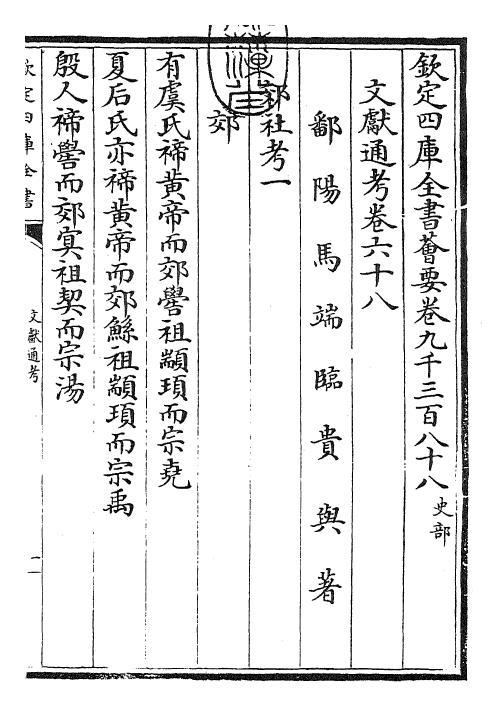 欽定四庫全書薈要卷九千三百八十八 史部
文獻通考卷六十八
鄱陽馬端臨貴與著
郊社考一
郊
有虞氏禘黃帝而郊嚳祖顓頊而宗堯
夏后氏亦禘黃帝而郊鯀祖顓頊而宗禹
殷人禘嚳而郊冥祖契而宗湯
欽定四庫全書
文獻通考